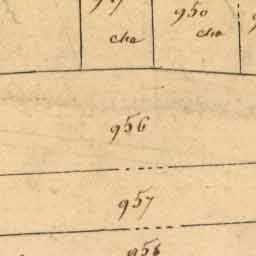 950
cha
cha
956
957
958